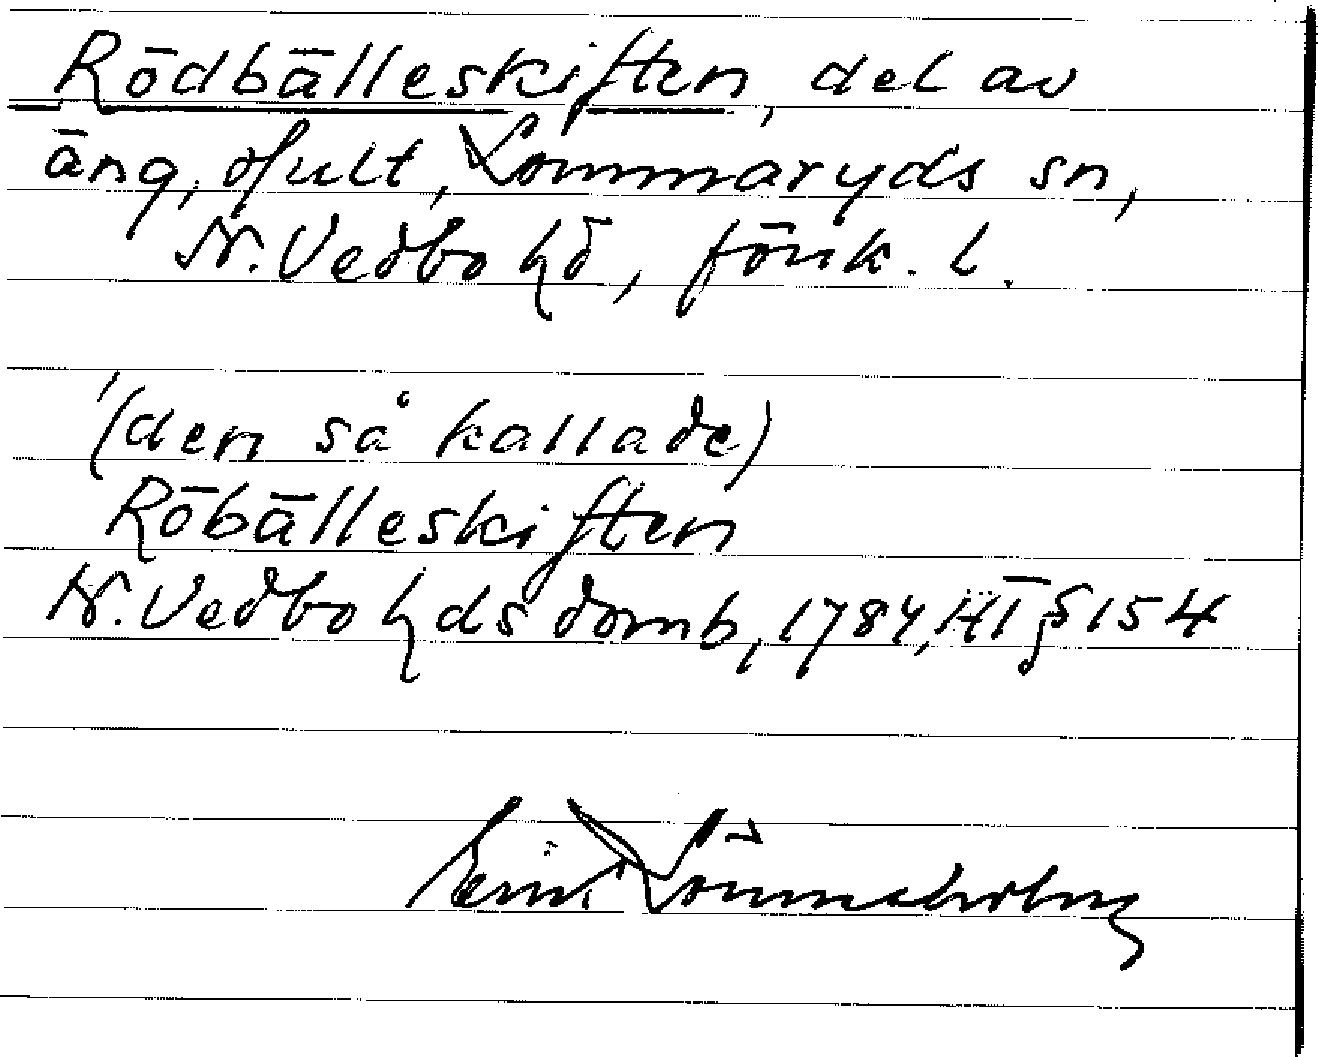 Rödbälleskiften, del av
äng, Hult, Lommaryds sn,
N. Vedbo hd, Jönk. l.
(den så kallade)
Röbälleskiften
N. Vedbo hds domb, 1784, HT § 154